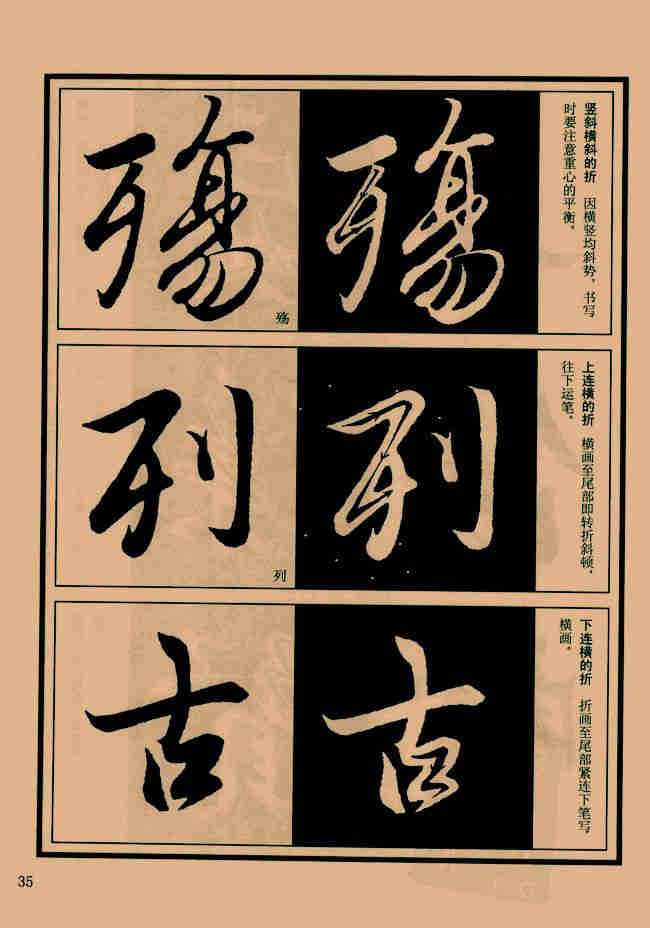 竖斜横斜的折　因横竖均斜势，书写
时要注意重心的平衡。
殇
殇
殇
上连横的折　横画至尾部即转折斜顿，
往下运笔。
列
列
列
下连横的折　折画至尾部紧连下笔写
横画。
古
古
35